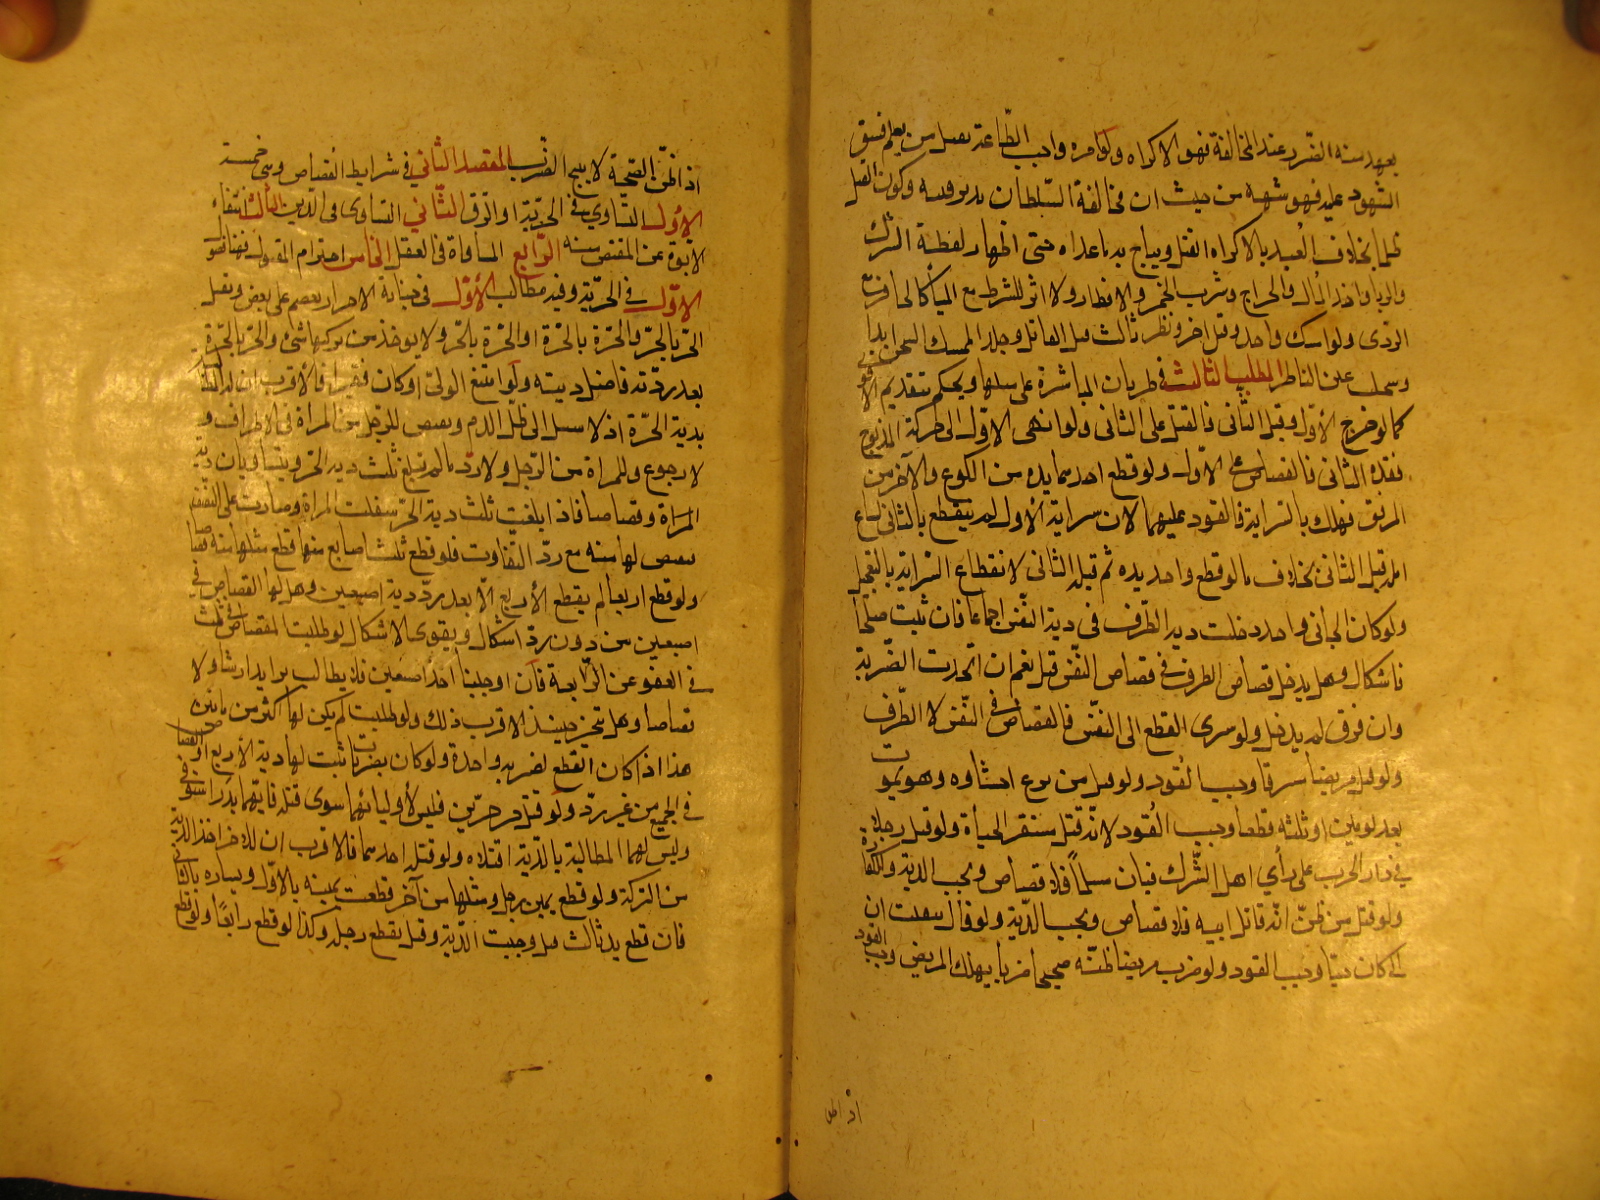 يعهد منه الضرر عند المخالفة فهو الاكراه ولو امره واجب الطاعة بقتل من يعلم فسق
الشهود عليه فهو شبهة من حيث ان مخالفة السلطان وكون القتل
ظلما بخلاف العبد بالاكراه القتل ويباح به ما عداه حتى اظهار لفظة الشرك
والزنا واخذ المال والجراح وشرب الخمر والافطار ولا اثر للشرط مع المباشرة كالحافر مع
المردى ولو امسك واحد وقتل آخر ونظر ثالث قتل القاتل وجلد الممسك السجن ابدا
وسملت عين الناظر المطلب الثالث في طريان المباشرة على مثلها ويحكم بتقديم الاقوى
كما لو جرح الاول وقتل الثاني فالقتل على الثاني ولو انهى الاول الى حركة المذبوح
فقده الثاني فالقصاص على الاول ولو قطع احدهما يده من الكوع والآخر من
المرفق فهلك بالسراية فالقود عليهما لان سراية الأول لم ينقطع بالثاني
الم قبل الثاني بخلاف ما لو قطع واحد يده ثم قتله الثاني لانقطاع السراية بالتعجيل
ولو كان الجاني واحد دخلت دية الطرف في دية النفس اجماعا فان ثبت صلحا
فاشكال وهل يدخل قصاص الطرف في قصاص النفس قيل نعم ان اتحدت الضربة
وان فرق لم يدخل ولو سرى القطع الى النفس فالقصاص في النفس لا الطرف
ولو قتل مريضا مشرفا وجب القود ولو قتل من نزع احشاؤه وهو يموت
بعد يومين او ثلثه قطعا وجب القود لانه قتل مستقر الحياة ولو قتل رجلا
في دار الحرب على رأي اهل الشرك فبان مسلما فلا قصاص ويجب الدية والكفارة
ولو قتل من ظن انه قاتل ابيه فلا قصاص ويجب الدية ولو قال تبينت ان
ابي كان حيا وجب القود ولو ضرب مريضا ظنه صحيحا ضربا يهلك المريض وجب القود
اذ ظن
اذ ظن الصحة لا يبيح الضرب المقصد الثاني في شرايط القصاص وهي خمسة
الاول التساوي في الحرية او الرق الثاني التساوي في الدين الثالث انتفاء
الابوة عن المقتص منه الرابع المساواة في العقل الخامس احترام المقتول فهنا فصول
الاول في الحرية وفيه مطالب الأول في جناية الاحرار بعضهم على بعض ويقتل
الحر بالحر والحرة بالحرة او الحرة بالحر ولا يوخذ من تركتها شئ والحر بالحرة
بعد رد فاضل ديته ولو امتنع الولي او كان فقيرا فالاقرب ان له المطالبة
بدية الحرة اذ لا سبيل الى طل الدم ويقتص للرجل من المراة في الاطراف و
لا رجوع وللمراة من الرجل ولا رد ما لم تبلغ ثلث دية الحر ويتساويان دية
المراة وقصاصا فاذا بلغت ثلث دية الحر سفلت المراة وصارت على النصف
فيقتص لها منه مع رد التفاوت فلو قطع ثلث اصابع منها قطع مثلها منه قصاصا
ولو قطع اربعا لم يقطع الأربع الا بعد رد دية اصبعين وهل لها القصاص في
اصبعين من دون رد اشكال ويقوى الاشكال لو طلبت القصاص في ثلث
في العفو عن الرابعة فان اوجبنا احد اصبعين فلا يطالب بزايد ارشا ولا
قصاصا وهل تتخير حينئذ الاقرب ذلك ولو طلبت لم يكن لها اكثر من مائتين
هذا اذا كان القطع بضربة واحدة ولو كان بضربات ثبت لها دية الأربع او القصاص
في الجميع من غير رد ولو قتل حر حرين فليس لأوليائهما سوى قتله فايهما بدر استوفى
وليس لهما المطالبة بالدية اذا قتلاه ولو قتله احدهما فالاقرب ان للاخر اخذ الدية
من التركة ولو قطع يمين رجل ومثلها من آخر قطعت يمينه بالاول ويساره بالثاني
فان قطع يد ثالث قيل وجبت الدية وقيل يقطع رجله وكذا لو قطع رابعا ولو قطع